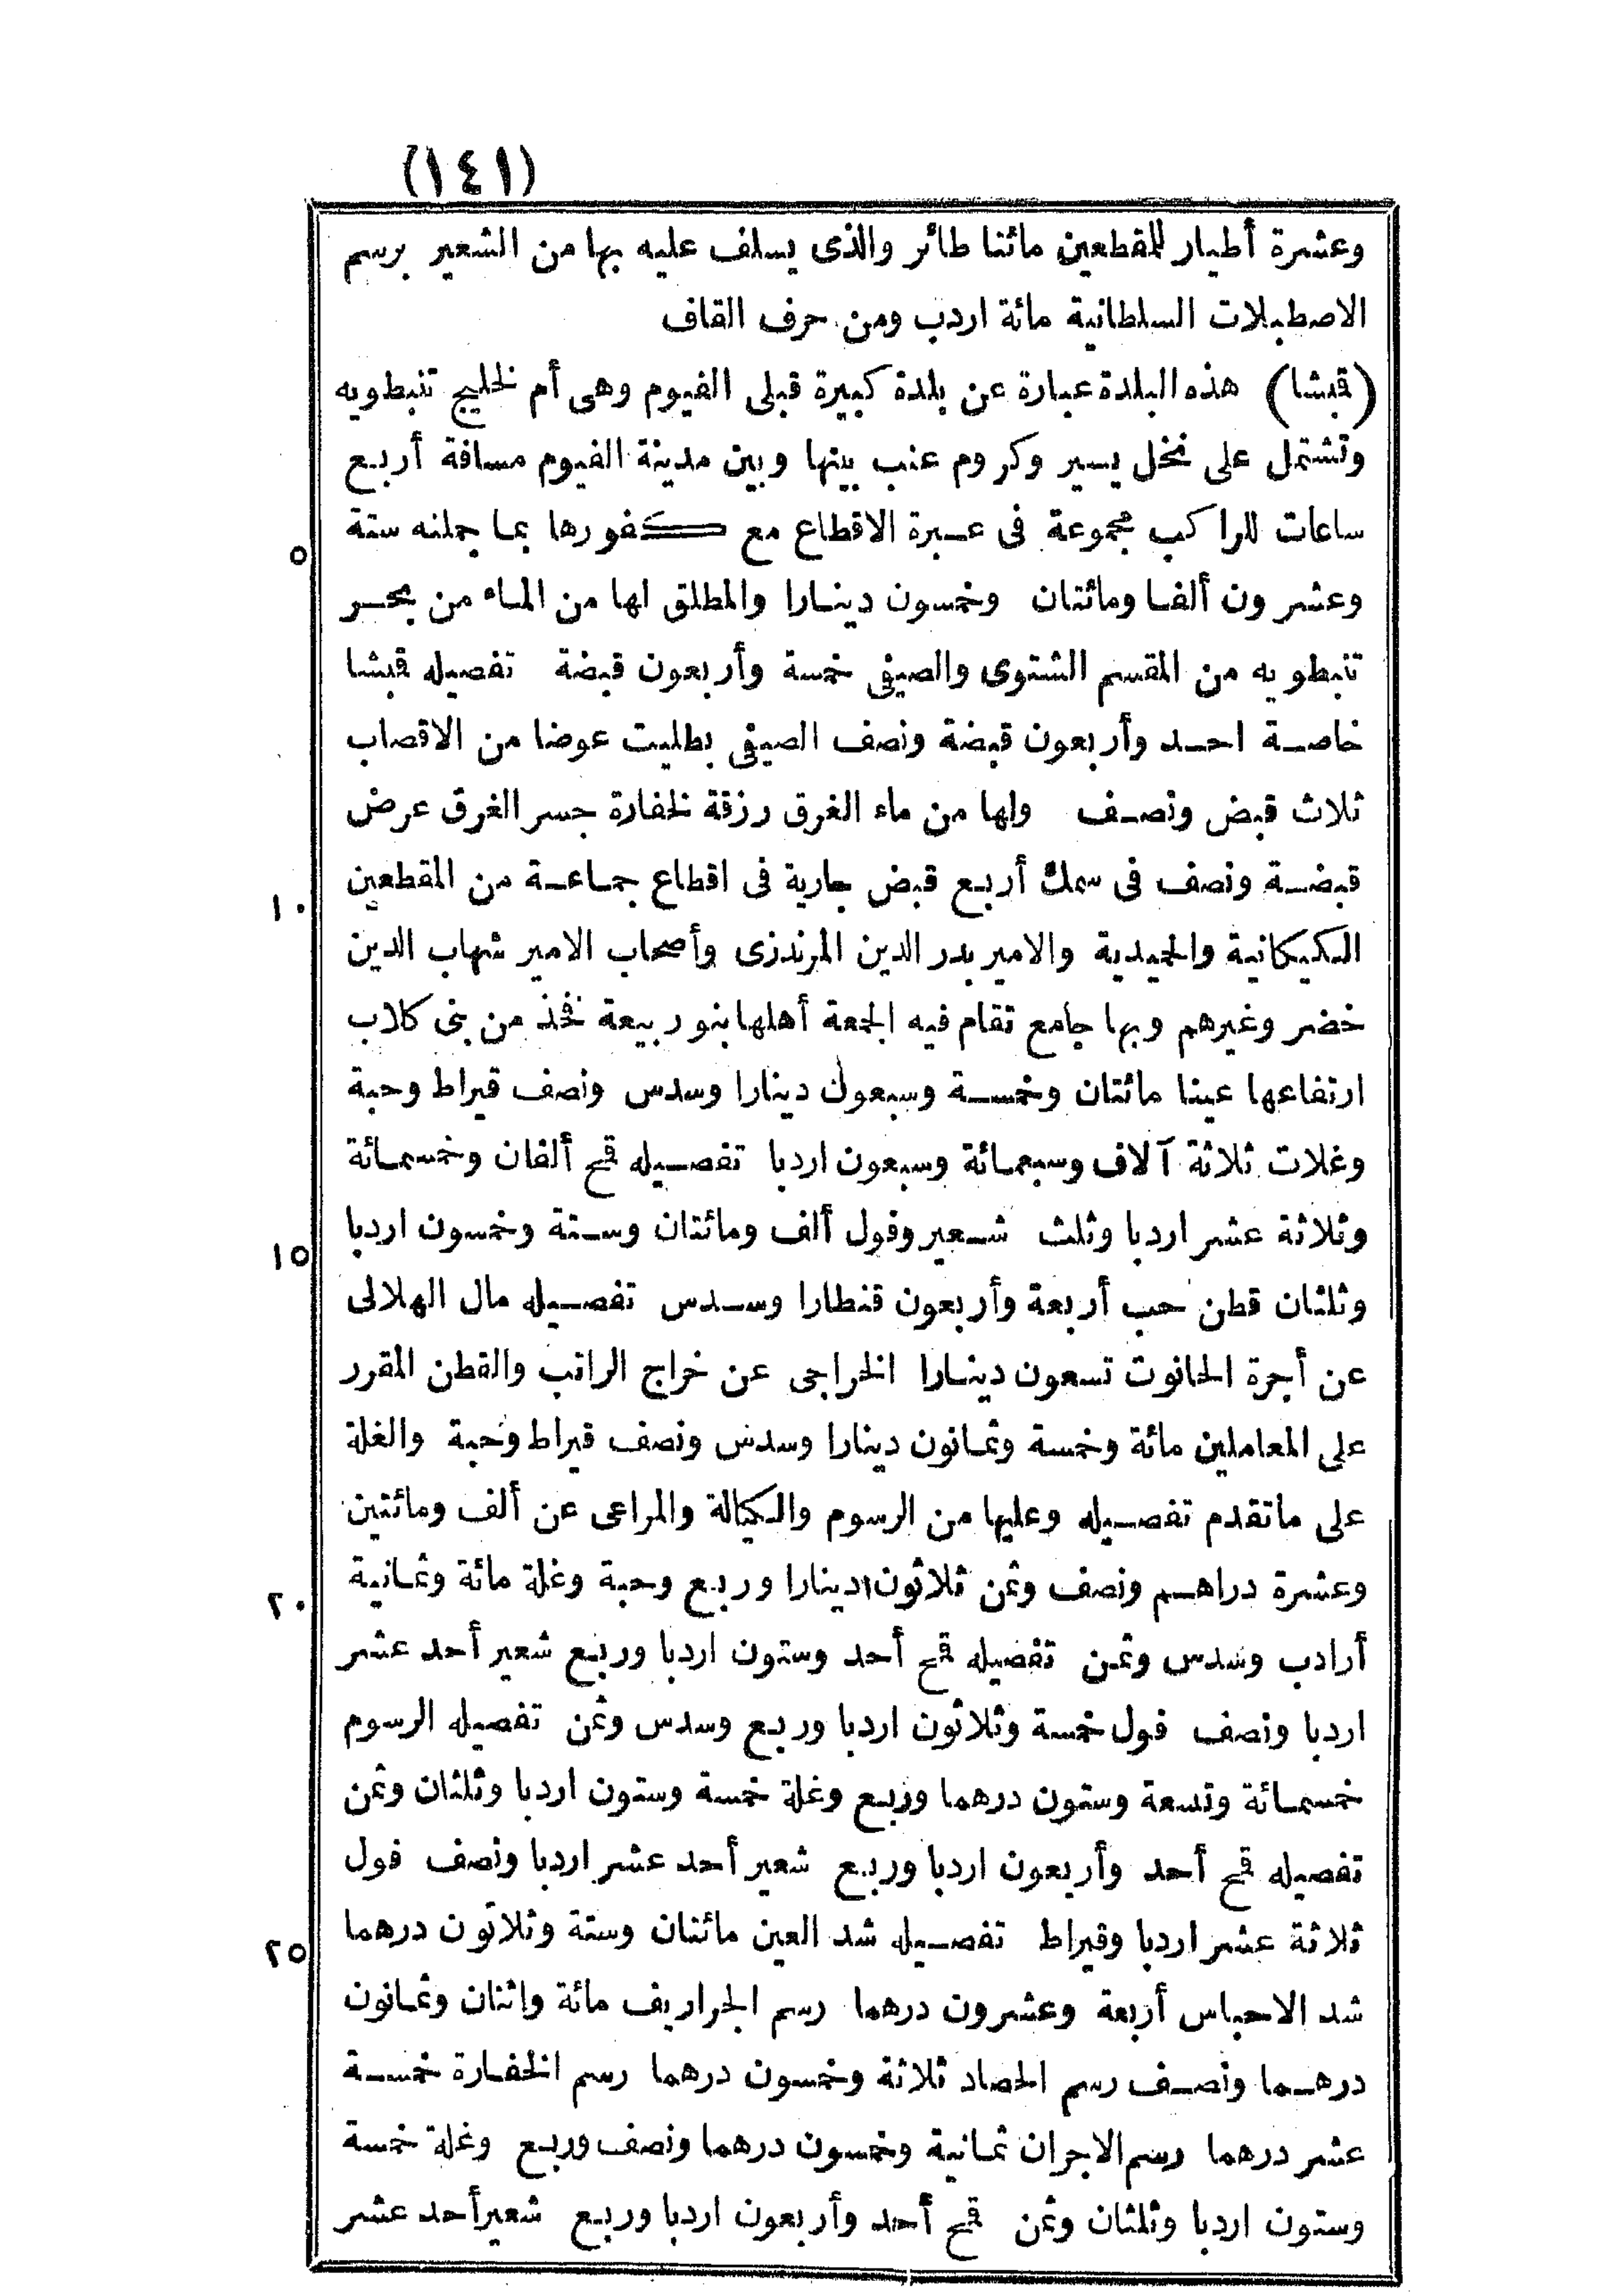 (١٤١)
وعشرة أطيار للمقطعين مائتا طائر والذى يسلف عليه بها من الشعير برسم
الاصطبلات السلطانية مائة اردب ومن حرف القاف
(قبشا) هذه البلدة عبارة عن بلدة كبيرة قبلى الفيوم وهى أم لخليج تنبطويه
وتشتمل على نخل يسير وكروم عنب بينها وبين مدينة الفيوم مسافة أربع
ساعات للراكب مجموعة فى عبرة الاقطاع مع كفورها بما جملته ستة
٥
وعشرون ألفا ومائتان وخمسون دينارا والمطلق لها من الماء من بحر
تنبطويه من المقسم الشتوى والصيفى خمسة وأربعون قبضة تفصيله قبشا
خاصة احد وأربعون قبضة ونصف الصيفى بطليت عوضا من الاقصاب
ثلاث قبض ونصف ولها من ماء الغرق رزقة لخفارة جسر الغرق عرض
قبضة ونصف فى سمك أربع قبض جارية فى اقطاع جماعة من المقطعين
١٠
الكيكانية والحميدية والامير بدر الدين المرندزى وأصحاب الامير شهاب الدين
خضر وغيرهم وبها جامع تقام فيه الجمعة أهلها بنو ربيعة فخذ من بنى كلاب
ارتفاعها عينا مائتان وخمسة وسبعون دينارا وسدس ونصف قيراط وحبة
وغلات ثلاثة آلاف وسبعمائة وسبعون اردبا تفصيله قمح ألفان وخمسمائة
وثلاثة عشر اردبا وثلث شعير وفول ألف ومائتان وستة وخمسون اردبا
١٥
وثلثان قطن حب أربعة وأربعون قنطارا وسدس تفصيله مال الهلالى
عن أجرة الحانوت تسعون دينارا الخراجى عن خراج الراتب والقطن المقرر
على المعاملين مائة وخمسة وثمانون دينارا وسدس ونصف قيراط وحبة والغلة
على ماتقدم تفصيله وعليها من الرسوم والكيالة والمراعى عن ألف ومائتين
وعشرة دراهم ونصف وثمن ثلاثون دينارا وربع وحبة وغلة مائة وثمانية
٢٠
أرادب وسدس وثمن تفصيله قمح أحد وستون اردبا وربع شعير أحد عشر
اردبا ونصف فول خمسة وثلاثون اردبا وربع وسدس وثمن تفصيله الرسوم
خمسمائة وتسعة وستون درهما وربع وغلة خمسة وستون اردبا وثلثان وثمن
تفصيله قمح أحد وأربعون اردبا وربع شعير أحد عشر اردبا ونصف فول
ثلاثة عشر اردبا وقيراط تفصيله شد العين مائتان وستة وثلاثون درهما
٢٥
شد الاحباس أربعة وعشرون درهما رسم الجراريف مائة واثنان وثمانون
درهما ونصف رسم الحصاد ثلاثة وخمسون درهما رسم الخفارة خمسة
عشر درهما رسم الاجران ثمانية وخمسون درهما ونصف وربع وغلة خمسة
وستون اردبا وثلثان وثمن قمح أحد وأربعون اردبا وربع شعير أحد عشر